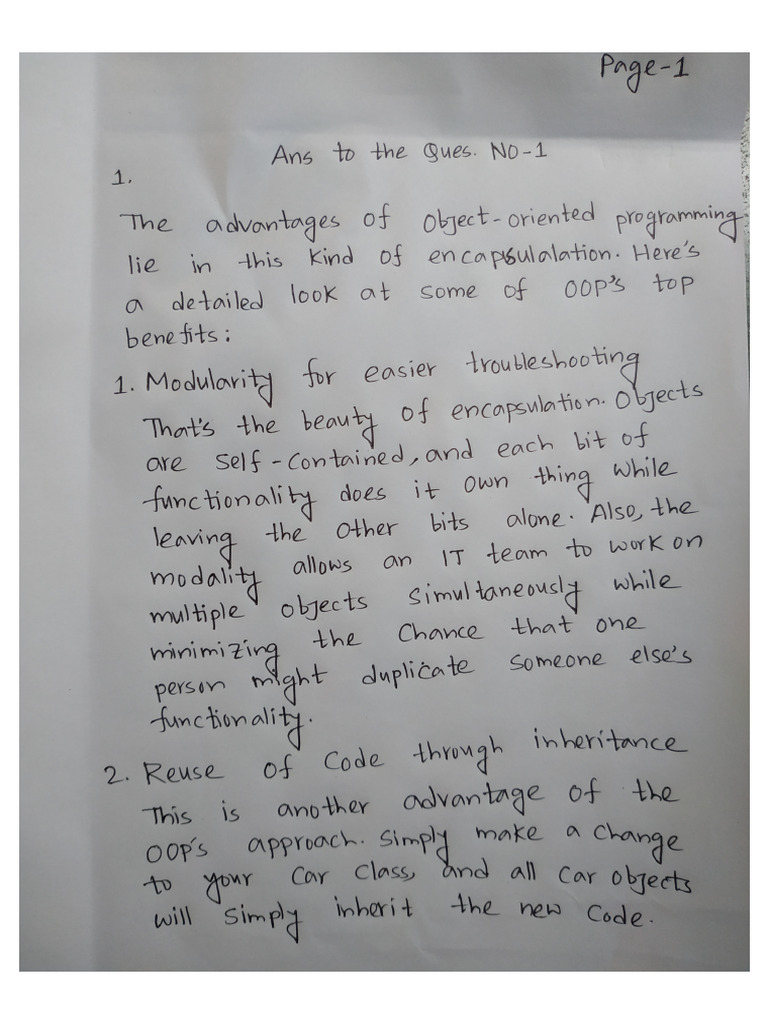 Page-1
Ans to the Ques. NO-1
1.
The advantages of object-oriented programming
lie in this kind of encapsulalation. Here's
a detailed look at some of OOP's top
benefits:
1. Modularity for easier troubleshooting
That's the beauty of encapsulation. Objects
are self-contained, and each bit of
functionality does it own thing while
leaving the other bits alone. Also, the
modality allows an IT team to work on
multiple objects simultaneously while
minimizing the chance that one
person might duplicate someone else's
functionality.
2. Reuse of code through inheritance
This is another advantage of the
OOP's approach. simply make a change
to your car class, and all car objects
will simply inherit the new code.